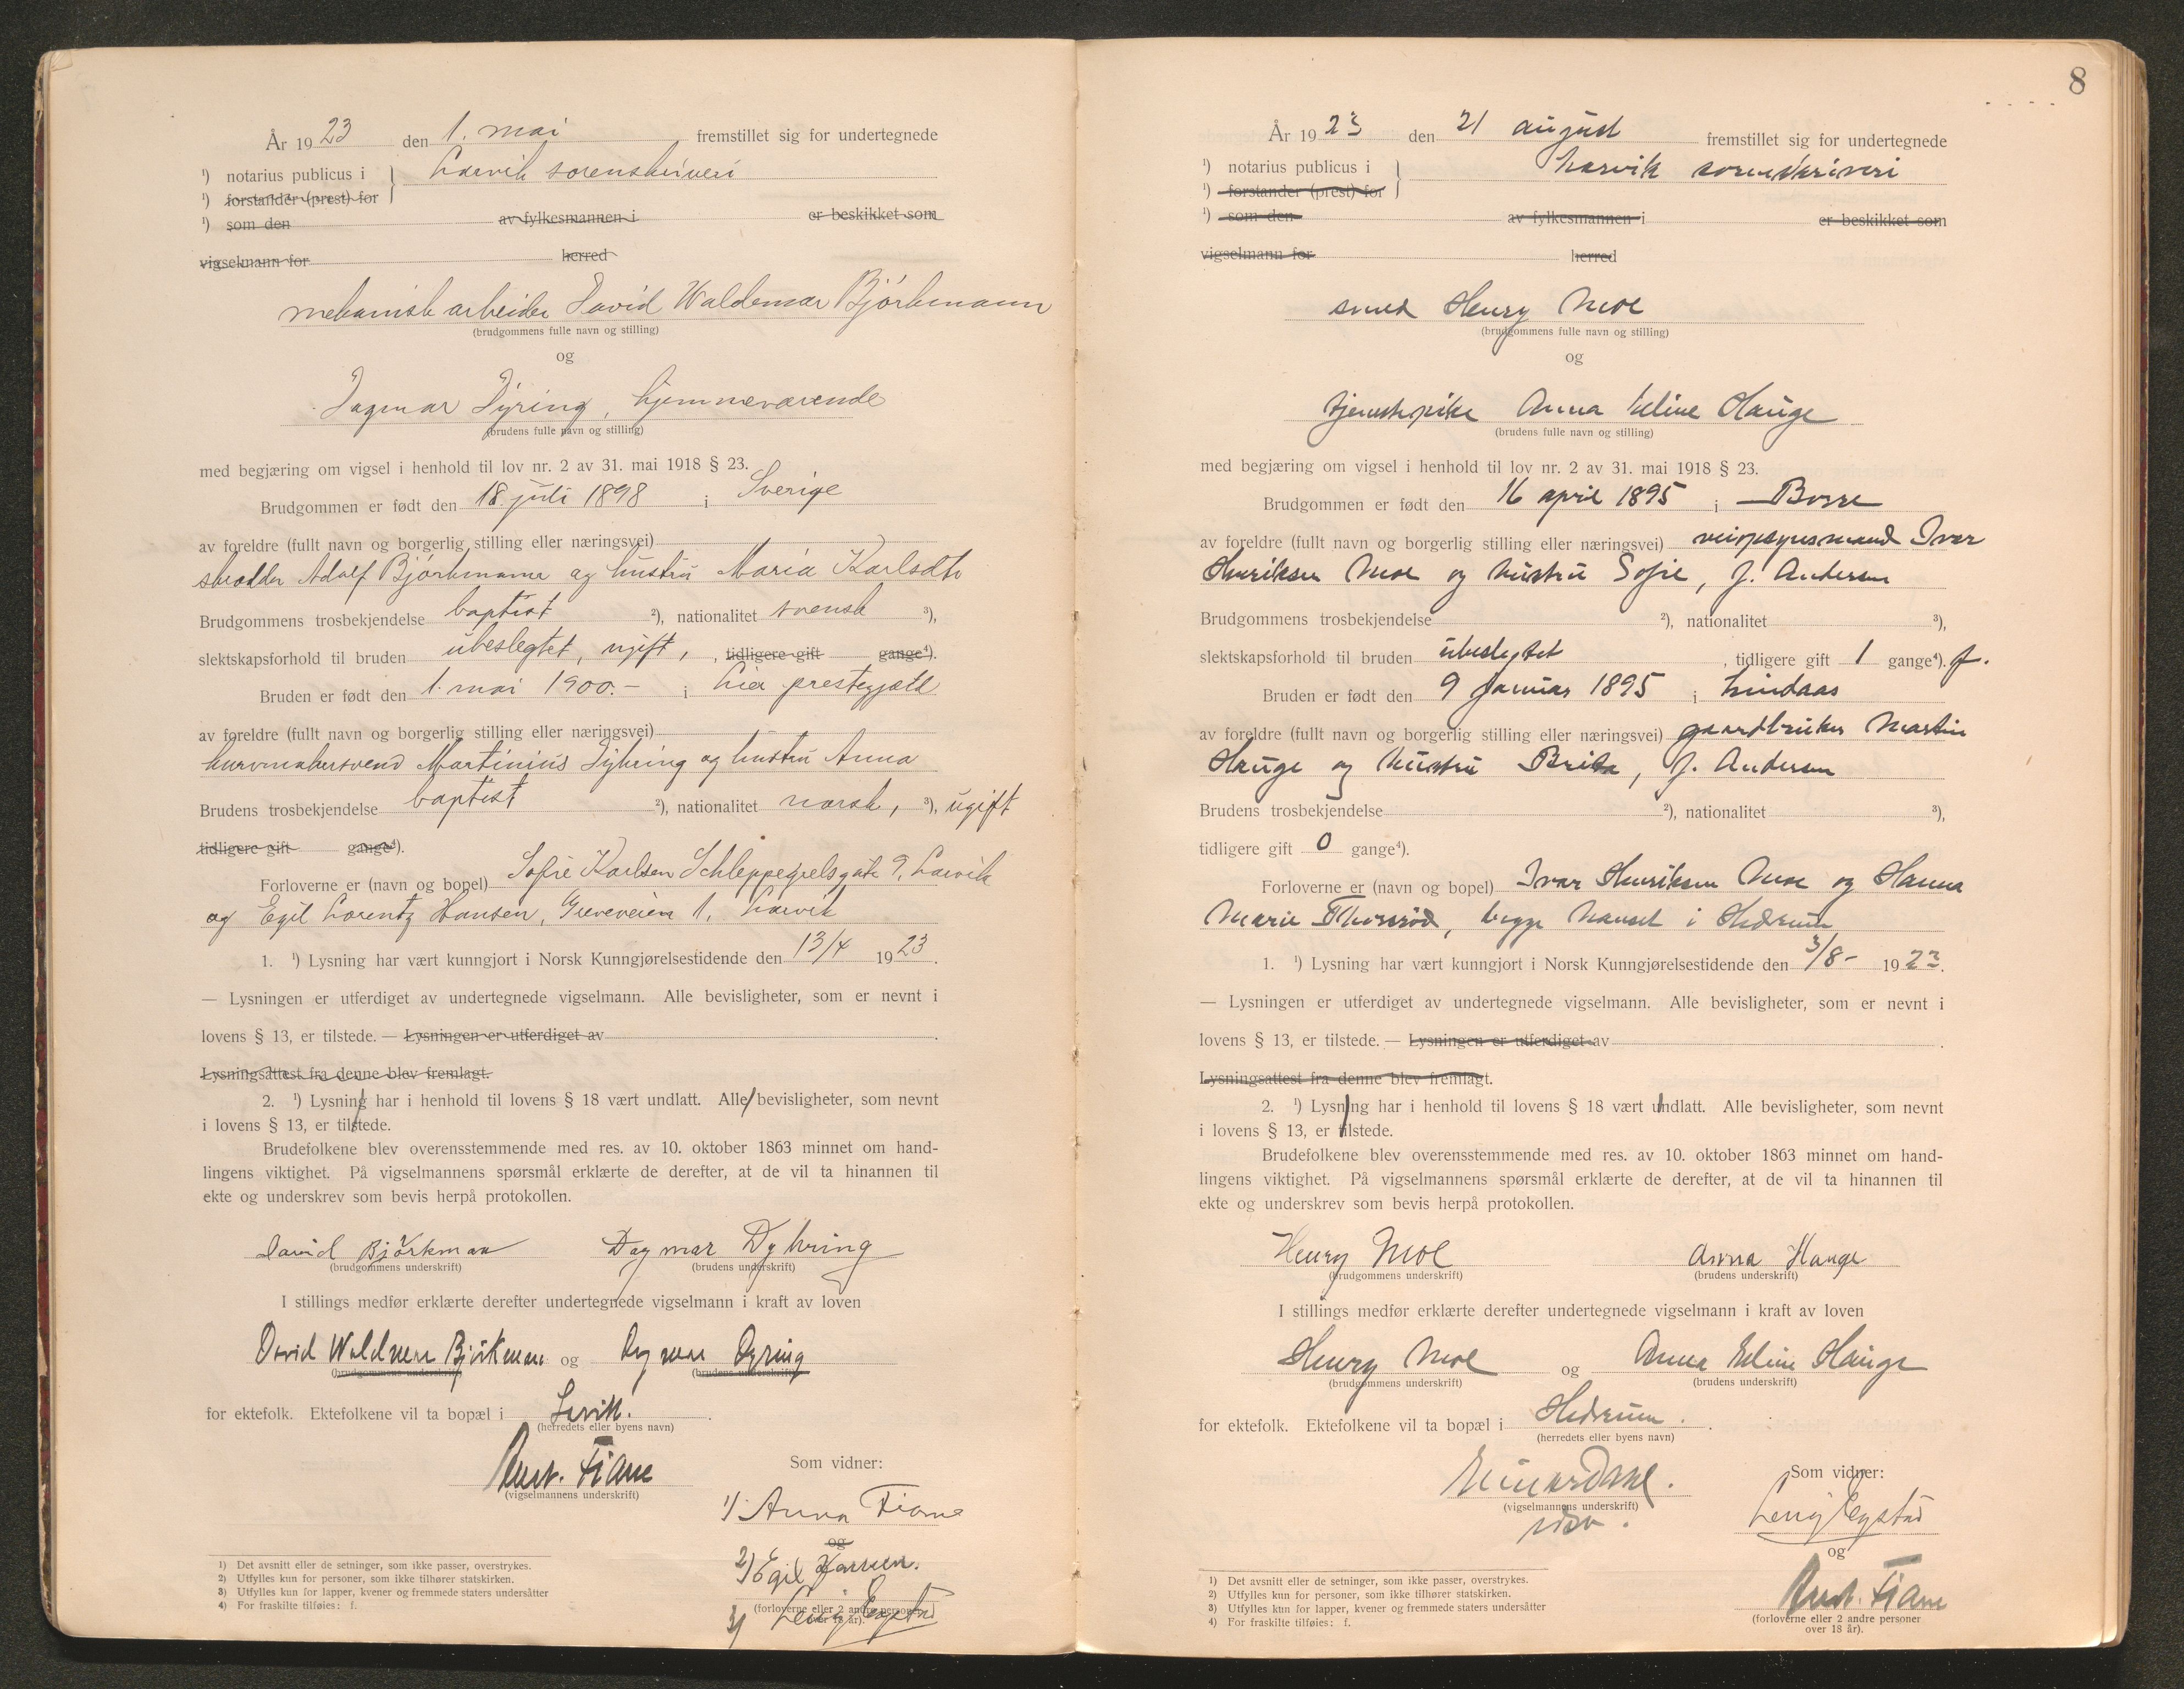 År 1923 den 1. mai fremstillet sig for undertegnede
¹) notarius publicus i } Larvik sorenskriveri
¹) forstander (prest) for
¹) som den av fylkesmannen i er beskikket som
vigselmann for herred
mekanisk arbeider David Waldemar Björkmann
(brudgommens fulle navn og stilling)
og
Dagmar Dyring, hjemmeværende
(brudens fulle navn og stilling)
med begjæring om vigsel i henhold til lov nr. 2 av 31. mai 1918 § 23.
Brudgommen er født den 18. juli 1898 i Sverige
av foreldre (fullt navn og borgerlig stilling eller næringsvei)
skrædder Adolf Björkmann og hustru Maria Karlsdtr
Brudgommens trosbekjendelse baptist ²), nationalitet svensk ³),
slektskapsforhold til bruden ubeslegtet, ugift, , tidligere gift gange⁴).
Bruden er født den 1. mai 1900.- i Lier prestegjæld
av foreldre (fullt navn og borgerlig stilling eller næringsvei)
kurvmakersvend Martinius Dyhring og hustru Anna
Brudens trosbekjendelse baptist ²), nationalitet norsk, ³), ugift
tidligere gift gange⁴).
Forloverne er (navn og bopel) Sofie Karlsen Schleppegrelsgate 9, Larvik
og Egil Lorentz Hansen, Greveveien 1, Larvik
1. ¹) Lysning har vært kunngjort i Norsk Kunngjørelsestidende den 13/4 1923.
— Lysningen er utferdiget av undertegnede vigselmann. Alle bevisligheter, som er nevnt i
lovens § 13, er tilstede. — Lysningen er utferdiget av .
Lysningsattest fra denne blev fremlagt.
2. ¹) Lysning har i henhold til lovens § 18 vært undlatt. Alle bevisligheter, som nevnt
i lovens § 13, er tilstede.
Brudefolkene blev overensstemmende med res. av 10. oktober 1863 minnet om hand-
lingens viktighet. På vigselmannens spørsmål erklærte de derefter, at de vil ta hinannen til
ekte og underskrev som bevis herpå protokollen.
David Björkman Dagmar Dyhring
(brudgommens underskrift) (brudens underskrift)
I stillings medfør erklærte derefter undertegnede vigselmann i kraft av loven
David Waldemar Björkman og Dagmar Dyring
(brudgommens underskrift) (brudens underskrift)
for ektefolk. Ektefolkene vil ta bopæl i Larvik.
(herredets eller byens navn)
Aust. Fiane
(vigselmannens underskrift)
Som vidner:
1) Anna Fiane
og
2) Egil Hansen.
3) Leiv Eegstad
(forloverne eller 2 andre personer
over 18 år).
1) Det avsnitt eller de setninger, som ikke passer, overstrykes.
2) Utfylles kun for personer, som ikke tilhører statskirken.
3) Utfylles kun for lapper, kvener og fremmede staters undersåtter
4) For fraskilte tilføies: f.
8
År 1923 den 21 august fremstillet sig for undertegnede
¹) notarius publicus i } Larvik sorenskriveri
¹) forstander (prest) for
¹) som den av fylkesmannen i er beskikket som
vigselmann for herred
smed Henry Moe
(brudgommens fulle navn og stilling)
og
tjenestepike Anna Eeline Hauge
(brudens fulle navn og stilling)
med begjæring om vigsel i henhold til lov nr. 2 av 31. mai 1918 § 23.
Brudgommen er født den 16 april 1895 i Borre
av foreldre (fullt navn og borgerlig stilling eller næringsvei) veiopsynsmand Ivar
Henriksen Moe og hustru Sofie, f. Andersen
Brudgommens trosbekjendelse ²), nationalitet ³),
slektskapsforhold til bruden ubeslegtet , tidligere gift 1 gange⁴). f.
Bruden er født den 9 januar 1895 i Lindaas
av foreldre (fullt navn og borgerlig stilling eller næringsvei) gaardbruker Martin
Hauge og hustru Brita, f. Andersen
Brudens trosbekjendelse ²), nationalitet ³),
tidligere gift 0 gange⁴).
Forloverne er (navn og bopel) Ivar Henriksen Moe og Hanna
Marie Thorsrød, begge Nanset i Hedrum
1. ¹) Lysning har vært kunngjort i Norsk Kunngjørelsestidende den 3/8- 1923.
— Lysningen er utferdiget av undertegnede vigselmann. Alle bevisligheter, som er nevnt i
lovens § 13, er tilstede. — Lysningen er utferdiget av .
Lysningsattest fra denne blev fremlagt.
2. ¹) Lysning har i henhold til lovens § 18 vært undlatt. Alle bevisligheter, som nevnt
i lovens § 13, er tilstede.
Brudefolkene blev overensstemmende med res. av 10. oktober 1863 minnet om hand-
lingens viktighet. På vigselmannens spørsmål erklærte de derefter, at de vil ta hinannen til
ekte og underskrev som bevis herpå protokollen.
Henry Moe Anna Hauge
(brudgommens underskrift) (brudens underskrift)
I stillings medfør erklærte derefter undertegnede vigselmann i kraft av loven
Henry Moe og Anna Eeline Hauge
(brudgommens underskrift) (brudens underskrift)
for ektefolk. Ektefolkene vil ta bopæl i Hedrum.
(herredets eller byens navn)
Einar Dahl.
(vigselmannens underskrift)
Som vidner:
Leiv Eegstad
og
Aust. Fiane
(forloverne eller 2 andre personer
over 18 år).
1) Det avsnitt eller de setninger, som ikke passer, overstrykes.
2) Utfylles kun for personer, som ikke tilhører statskirken.
3) Utfylles kun for lapper, kvener og fremmede staters undersåtter
4) For fraskilte tilføies: f.